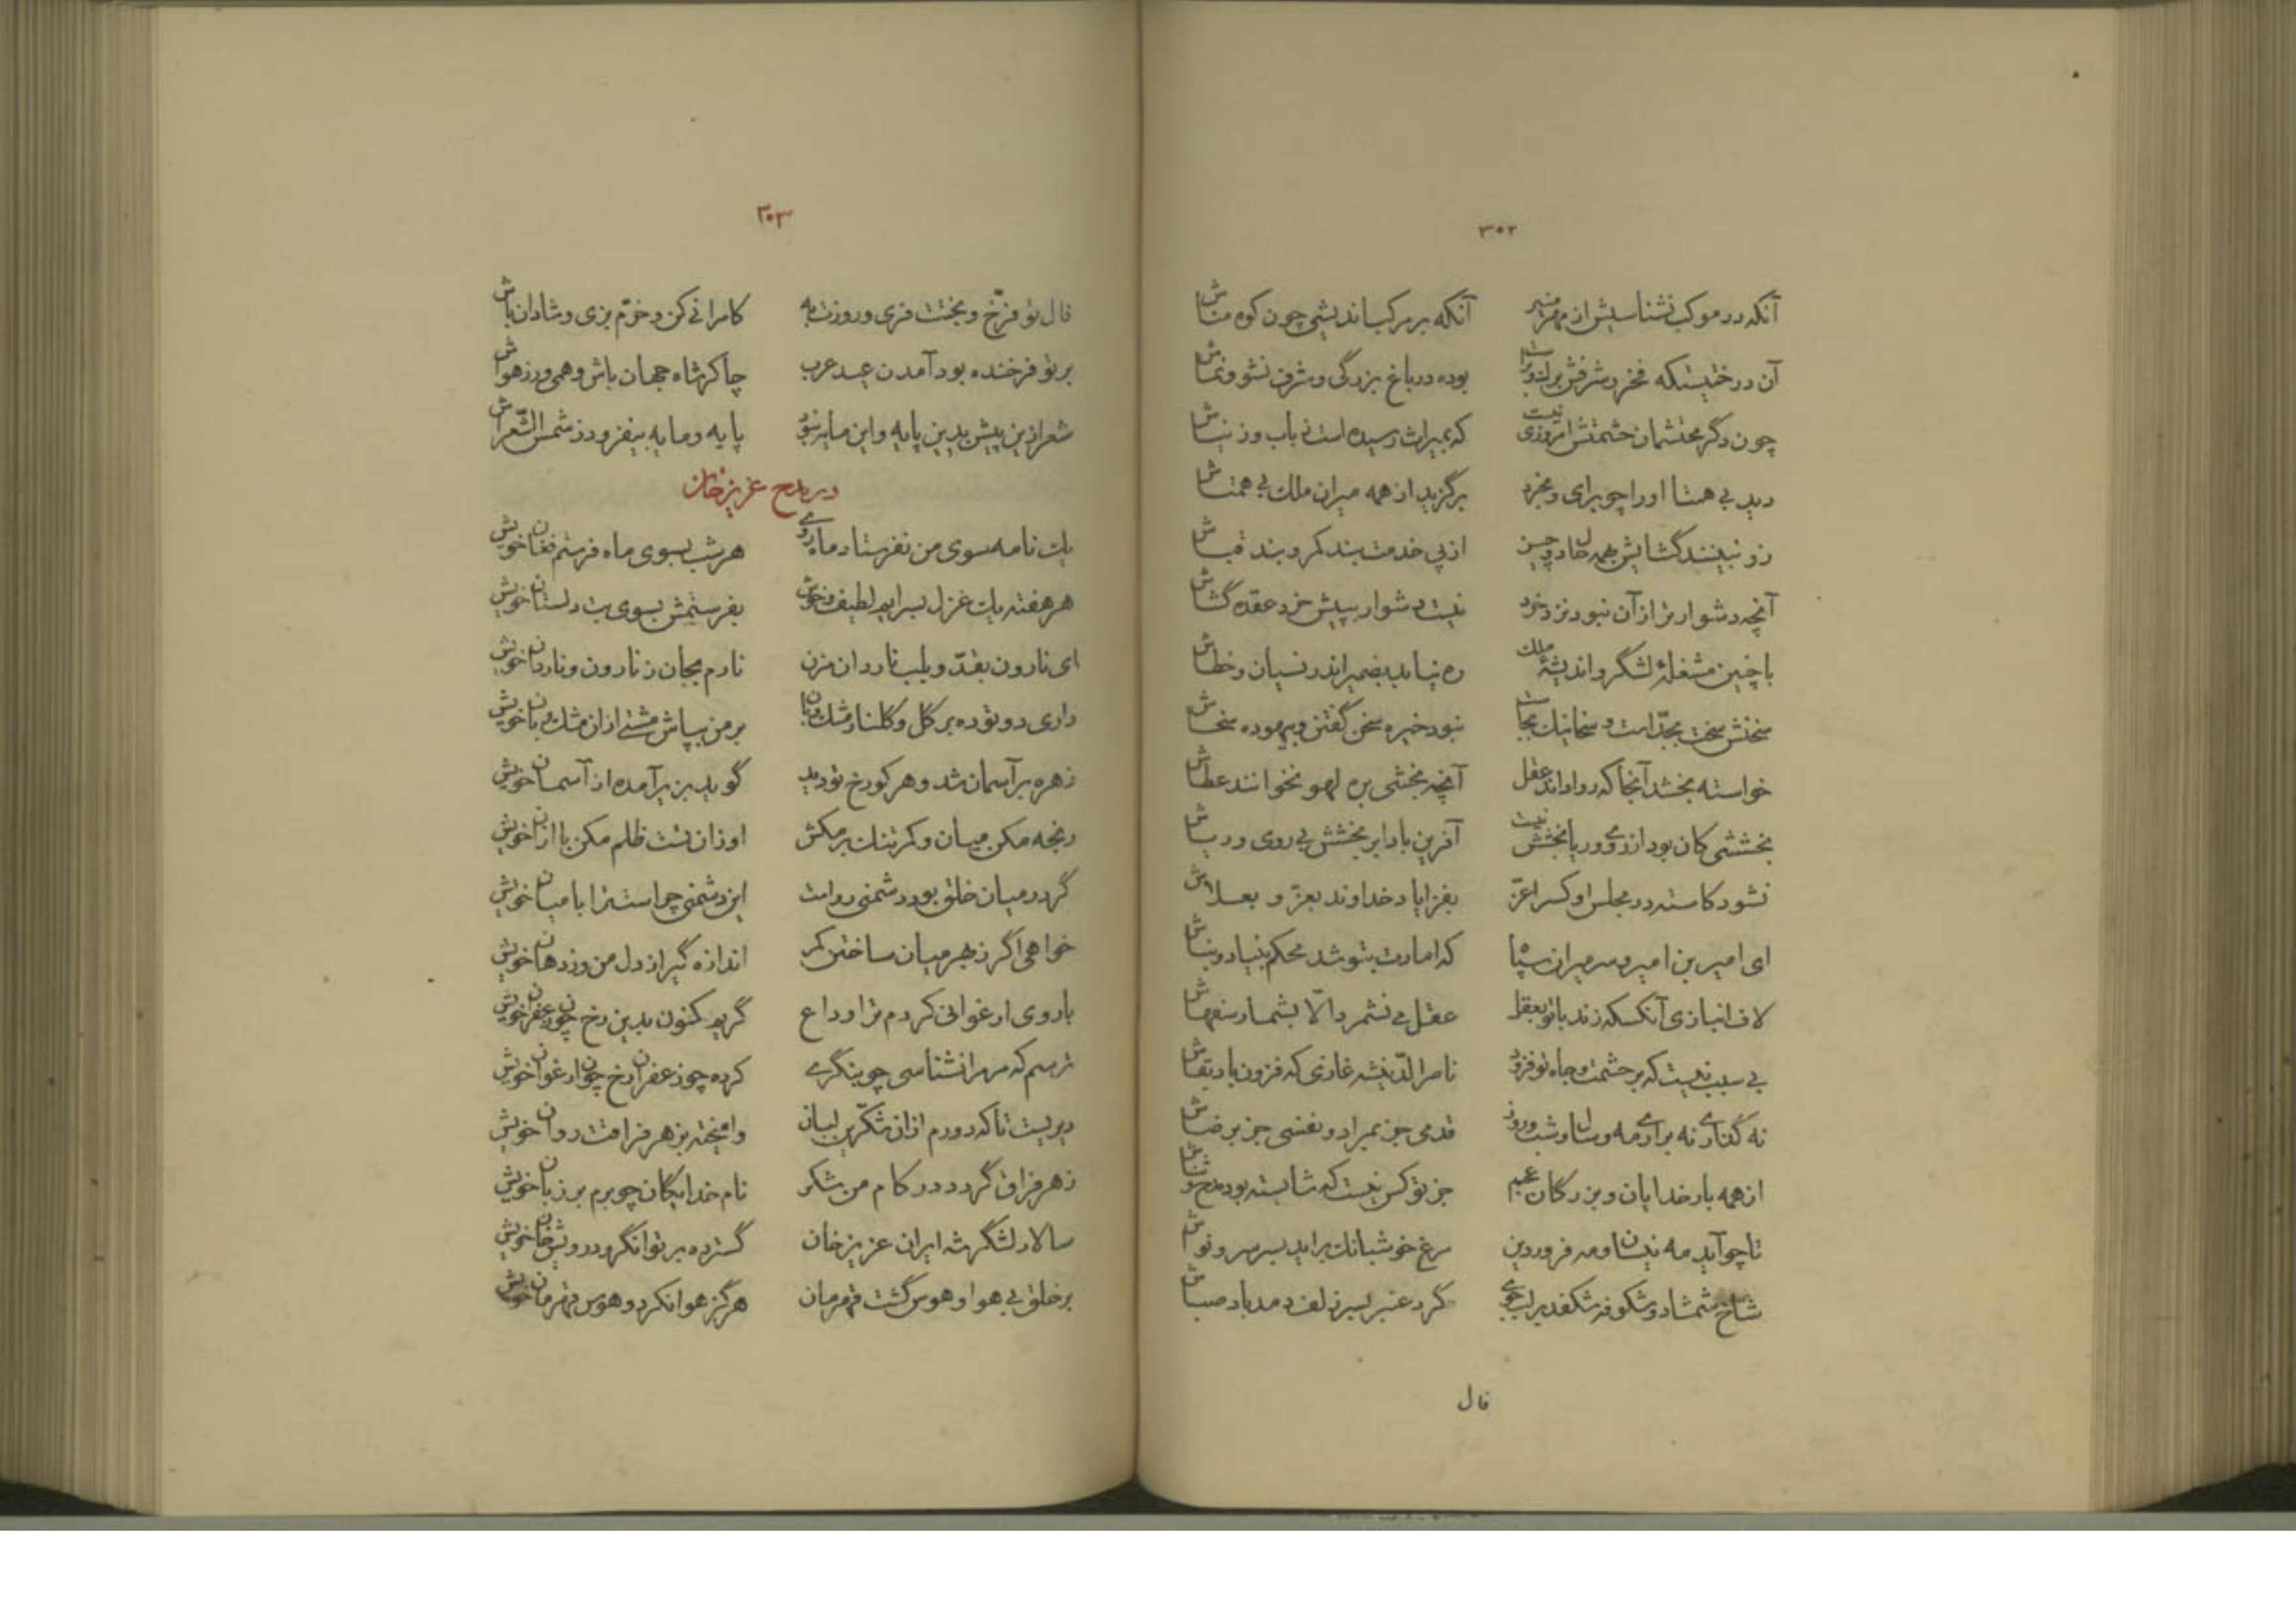 ۳۰۲
آنکه در موکب نشناسیش از مهر منیر آنکه بر مرکب اندیشی چون کوه مناش
آن درختیستکه فخر و شرفش برگ و براست بوده در باغ بزرگی و شرف نشو و نماش
چون دگر محتشمان حشمتش امروزی نیست که بمیراث رسیده است ز باب و ز نیاش
دید بی همتا او را چو برای و بخرد برگزید از همه میران ملک بی همتاش
زو نبینند گشایش بهمه حال و بچین از پی خدمت بند کمر و بند قباش
آنچه دشوارتر از آن نبود نزد خرد نیست دشوار بپیش خرد عقده گشاش
با چنین مشغلهٔ لشگر و اندیشهٔ ملک ره نیابد بضمیر اندر نسیان و خطاش
سخنش سخت بجدّ است و سخا نیک بجاست نبود خیره سخن گفتن و بیهوده سخاش
خواسته بخشد آنجا که روا داند عقل آنچه بخشی بره لهو نخوانند عطاش
بخششی کان بود از روی و ریا بخشش نیست آفرین باد ابر بخشش بی روی و ریاش
نشود کاسته در مجلس او کس را عزّ بفزایاد خداوند بعزّ و بعلاش
ای امیر بن امیر و سر میران سپاه که امارت بتو شد محکم بنیاد و بناش
لاف انبازی آنکسکه زند با تو بعقل عقل می نشمرد الّا بشمار سفهاش
بی سببی نیست که بر حشمت و جاه تو فزود ناصرالدّین شه غازی که فزون باد بقاش
نه گذاری نه براری مه و سال و شب و روز قدمی جز بمراد و نفسی جز برضاش
از همه بار خدایان و بزرگان عجم جز تو کس نیست که شایسته بود مدح و ثناش
تا چو آید مه نیسان و مه فروردین مرغ خوش بانک براید بسر سرو نواش
شاخ شمشاد و شکوفه شکفد بر لب جوی گرد عنبر بسر زلف دمد باد صباش
فال
۳۰۳
فال تو فرّخ و بختت فری و روزت به کامرانی کن و خرّم بزی و شادان باش
بر تو فرخنده بود آمدن عید عرب چاکر شاه جهان باش و همی ورز هواش
شعر ازین پیش بدین پایه و این مایه نبود پایه و مایه بیفزود ز شمس الشّعراش
در مدح عزیز خان
یک نامه سوی من نفرستاد ماه روی هر شب بسوی ماه فرستم فغان خویش
هر هفته یک غزل بسرایم لطیف و خوش بفرستمش بسوی بت دلستان خویش
ای نارون بقدّ و بلب ناردان من نارم بجان ز نارون و ناردان خویش
داری دو توده بر گل و گلنار مشک و بان بر من بپاش مشتی ازان مشک و بان خویش
زهره بر آسمان شد و هر کو رخ تو دید گوید بزیر آمده از آسمان خویش
رنجه مکن میان و کمر تنک بر مکش او زان تست ظلم مکن با ازان خویش
گر در میان خلق بود دشمنی رواست این دشمنی چراست ترا با میان خویش
خواهی اگر ز بهر میان ساختن کمر اندازه گیر از دل من وز دهان خویش
با روی ارغوانی کردم ترا وداع گریم کنون بدین رخ چون زعفران خویش
ترسم که مر مرا نشناسی چو بنگری کرده چو زعفران رخ چون ارغوان خویش
دیریست تا که دورم ازان شکّرین لبان وامیخته بزهر فراقت روان خویش
زهر فراق گردد در کام من شکر نام خدایگان چو برم بر زبان خویش
سالار لشگر شه ایران عزیز خان گسترده بر توانگر و درویش خوان خویش
بر خلق بی هوا و هوس گشت قهرمان هرگز هوا نکرد و هوس قهرمان خویش